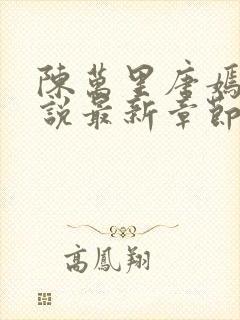 陳萬里唐嫣
說最新章節
高鳳翔